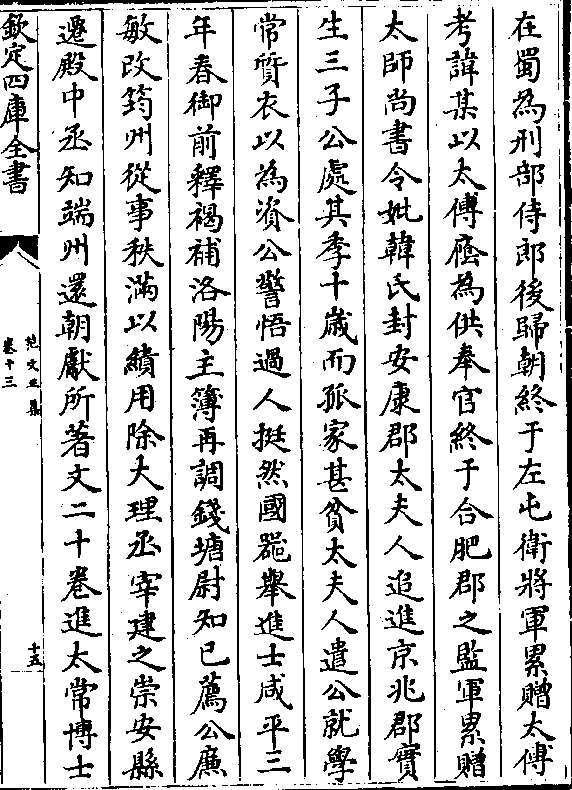 在蜀為刑部侍郎後歸朝終于左屯衛將軍累贈太傅
考諱某以太傅廕為供奉官終于合肥郡之監軍累贈
太師尚書令妣韓氏封安康郡太夫人追進京兆郡實
生三子公處其季十歲而孤家甚貧太夫人遣公就學
常質衣以為資公警悟過人挺然國器舉進士咸平三
年春御前釋褐補洛陽主簿再調錢塘尉知已薦公廉
敏改筠州從事秩滿以績用除大理丞宰建之崇安縣
遷殿中丞知端州還朝獻所著文二十卷進太常博士
欽定四庫全書
范文正集
卷十三
十五